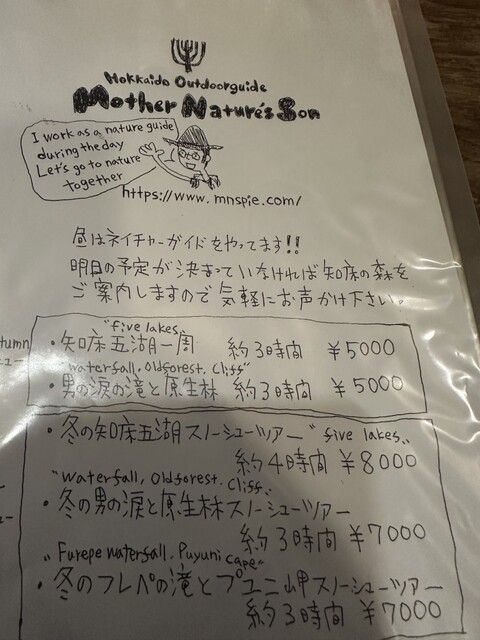 Hokkaido Outdoorguide
Mother Nature's Son
I work as a nature guide
during the day
Let's go to nature
together
https://www.mnspie.com/
昼はネイチャーガイドをやってます!!
明日の予定が決まっていなければ知床の森を
ご案内しますので気軽にお声かけ下さい。
"five lakes"
・知床五湖一周 約3時間 ¥5000
"waterfall, Oldforest. Cliff"
・男の涙の滝と原生林 約3時間 ¥5000
・冬の知床五湖スノーシューツアー "five lakes"
約4時間 ¥8000
"waterfall, Oldforest. Cliff"
・冬の男の涙と原生林スノーシューツアー
約3時間 ¥7000
"Furepe waterfall, Puyuni cape"
・冬のフレペの滝とプユニ岬スノーシューツアー
約3時間 ¥7000